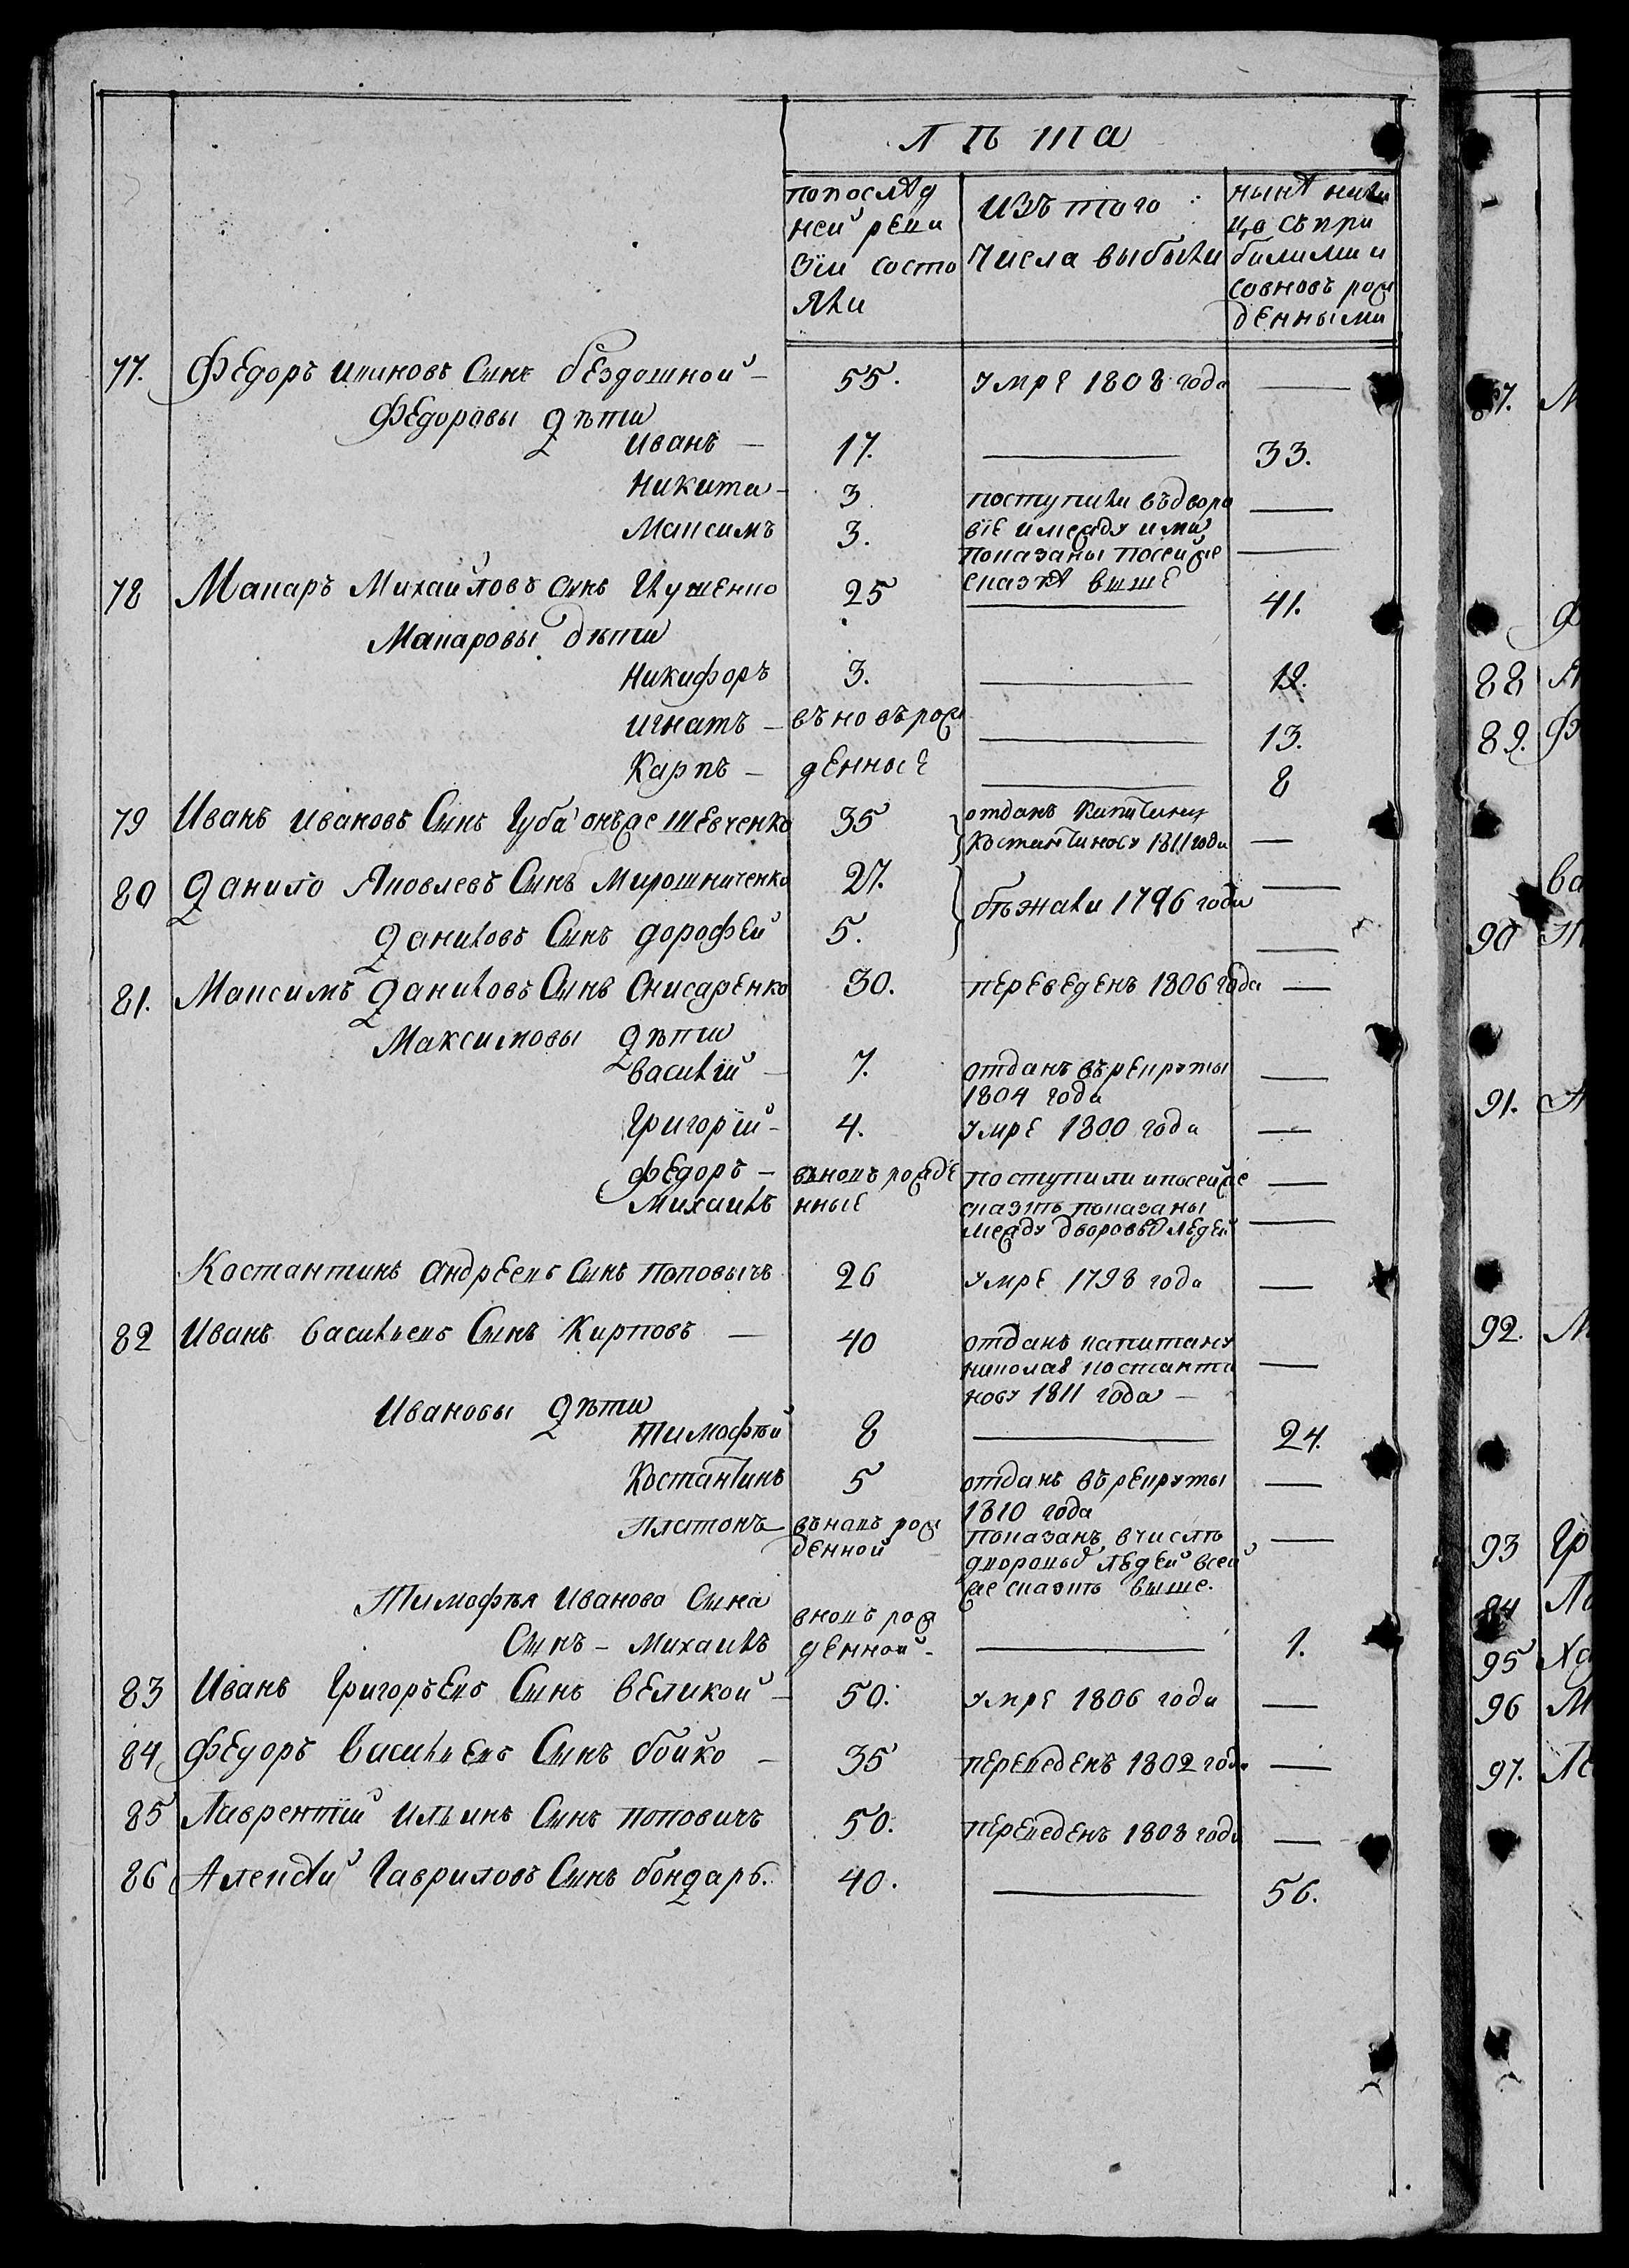 лѣта
попослѣд
ней реви
зїи состо
яли
изъ того
числа выбыли
нынѣ нали
цо съ при
былими и
совновъ рож
денными
77. Федоръ Ивановъ Сынъ бездошной — 55. умре 1808 года —
Федоровы Дѣти
иванъ — 17. — 33.
никита — 3 поступили въ дворо —
Максимъ 3. вїе имежду ими —
показаны посей же
сказкѣ выше
78 Макаръ Михайловъ сынъ Глущенко 25 — 41.
Макаровы дѣти
никифоръ 3. — 19.
игнатъ — въновърож — 13.
Карпъ — денные — 8
79 Иванъ ивановъ Сынъ Губа онъже шевченко 35 отданъ капитану
Костантинову 1811 года —
80 Данило Яковлевъ Сынъ Мирошниченко 27. бѣжали 1796 года —
Даниловъ Сынъ дорофей 5. —
81. Максимъ Даниловъ Сынъ Снисаренко 30. переведенъ 1806 года —
Максимовы Дѣти
василїй — 7. отданъ врекруты —
1804 года
Григорїй — 4. умре 1800 года —
федоръ — вновъ рожде поступили ипосейже —
михаилъ нные сказкѣ показаны
между дворовыхъ людей —
Костантинъ андреевъ Сынъ поповычъ 26 умре 1798 года —
82 Иванъ васильевъ Сынъ Кирповъ — 40 отданъ капитану
николаю костанти —
нову 1811 года —
Ивановы Дѣти
тимофѣй 8 — 24.
Костантинъ 5 отданъ върекруты —
1810 года
платонъ — вновъ рож показанъ вчислѣ —
денной дворовыхъ людей всей
же сказкѣ выше.
Тимофѣя иванова Сына
Сынъ — михаилъ вновъ рож
денной — — 1.
83 Иванъ Григорьевъ Сынъ великой — 50. умре 1806 года —
84 Федоръ васильевъ Сынъ бойко — 35 переведенъ 1802 года —
85 Лаврентїй ильинъ Сынъ поповичъ 50. переведенъ 1808 года —
86 Алексѣй Гавриловъ Сынъ бондарь. 40. — 56.
87. М
Ф
88
89. Ф
ва
90
91.
92. М
93 Гр
94
95 Ха
96 М
97.